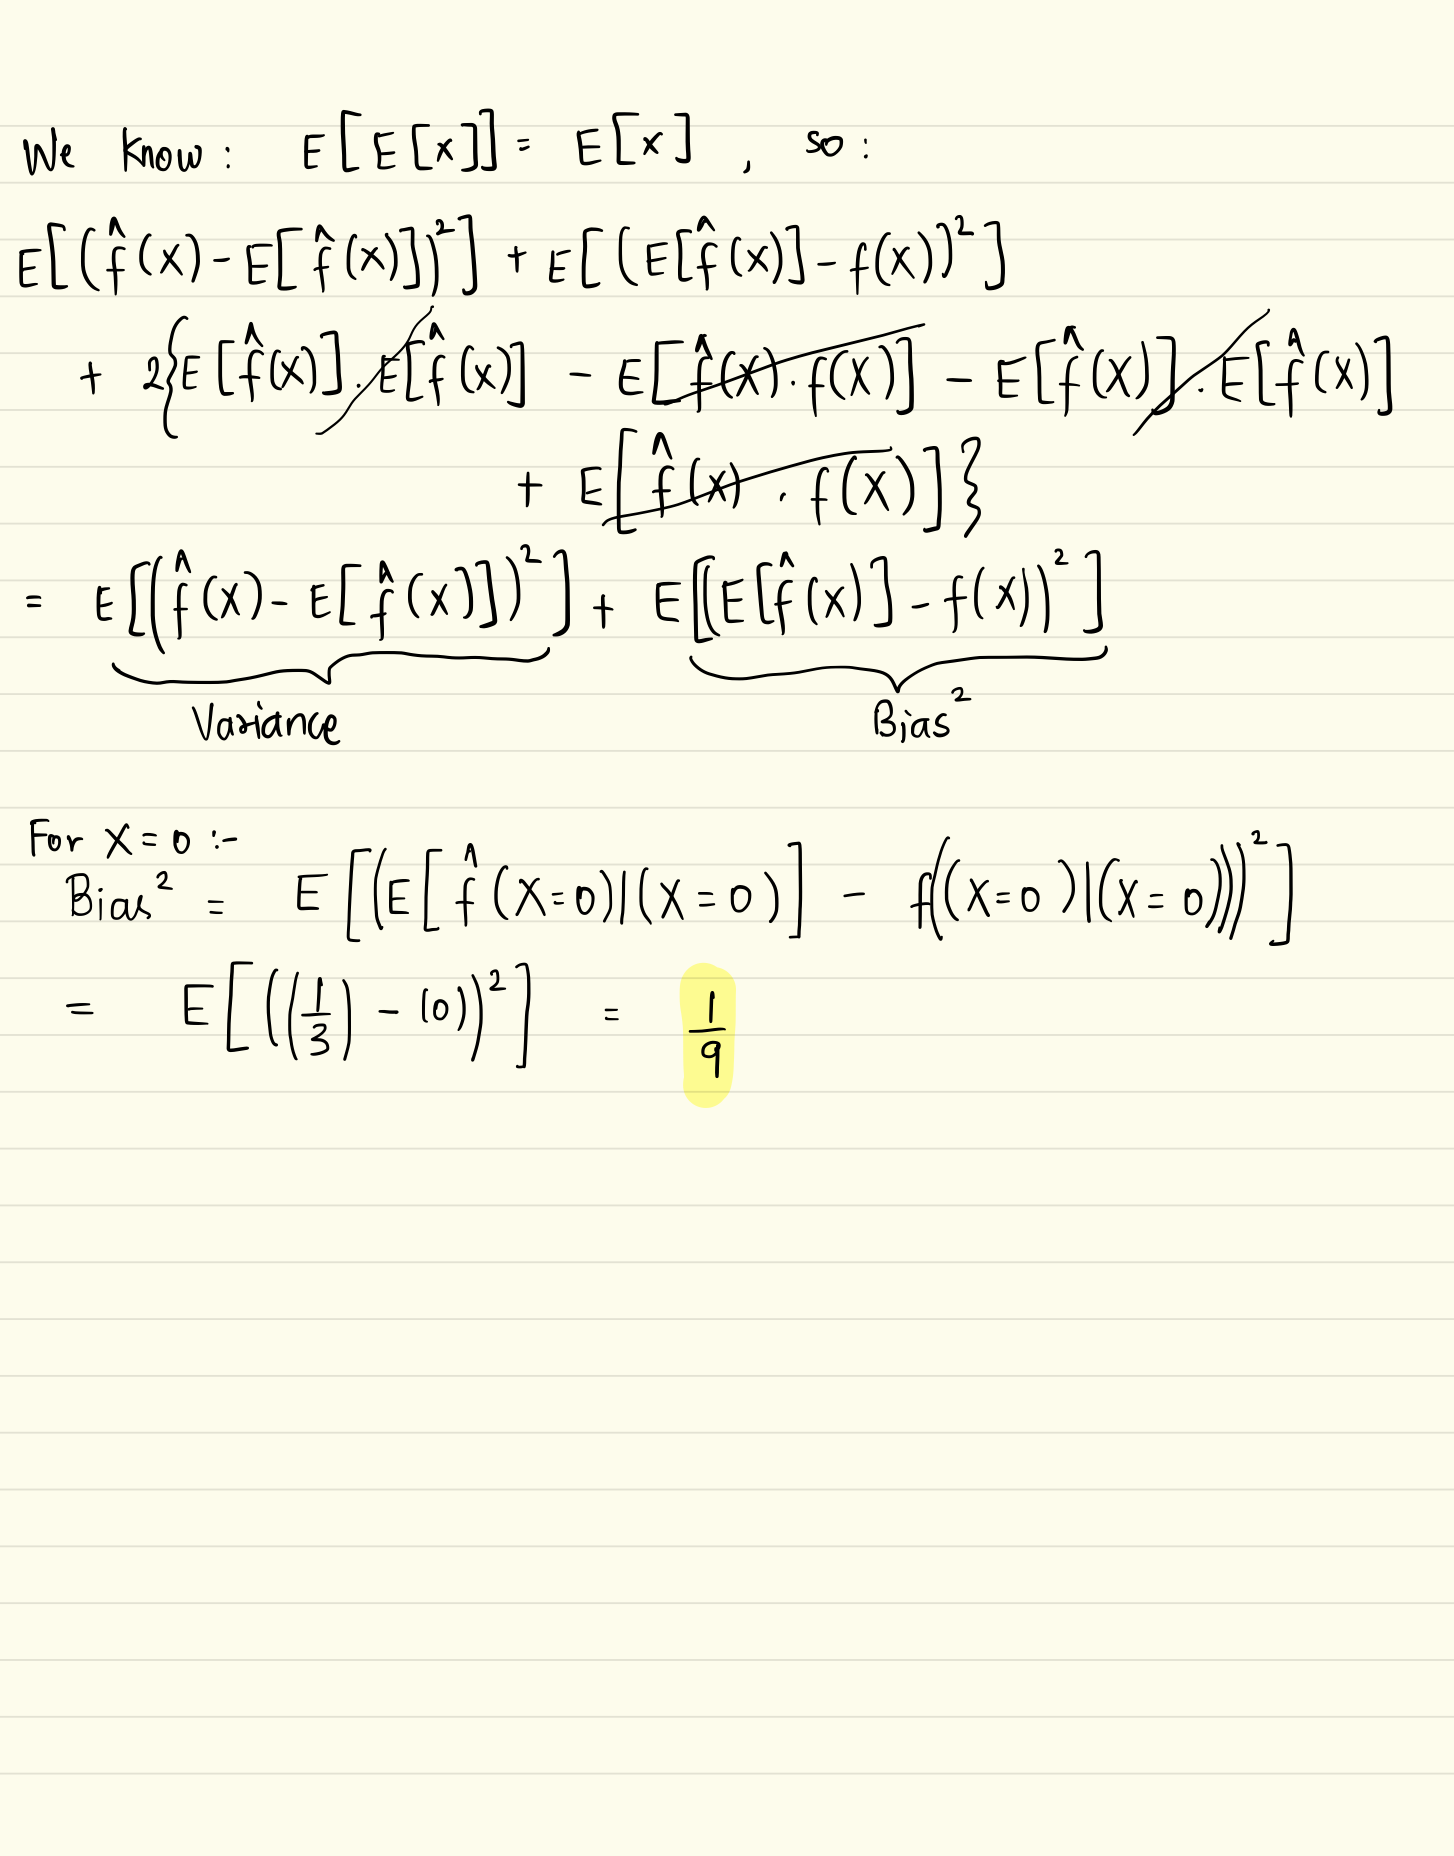 We know: E[E[x]] = E[x], so:
E[(f̂(x) - E[f̂(x)])²] + E[(E[f̂(x)] - f(x))²]
+ 2{E[f̂(x)] · E[f̂(x)] - E[f̂(x) · f(x)] - E[f̂(x)] · E[f̂(x)]
+ E[f̂(x) · f(x)]}
= E[(f̂(x) - E[f̂(x)])²] + E[(E[f̂(x)] - f(x))²]
Variance Bias²
For X = 0 :-
Bias² = E[(E[f̂(X=0)|(X=0)] - f((X=0)|(X=0)))²]
= E[((1/3) - (0))²] = 1/9